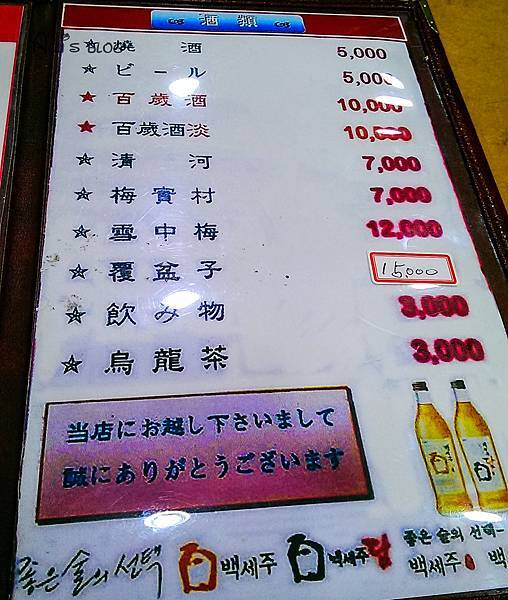 酒類
☆ 燒酒 5,000
☆ ビール 5,000
★ 百歲酒 10,000
★ 百歲酒淡 10,000
☆ 清河 7,000
☆ 梅實村 7,000
☆ 雪中梅 12,000
☆ 覆盆子 15,000
☆ 飲み物 3,000
☆ 烏龍茶 3,000
当店にお越し下さいまして
誠にありがとうございます
좋은 술의 선택
좋은 술의 선택 백세주 백세주담 백세주 백